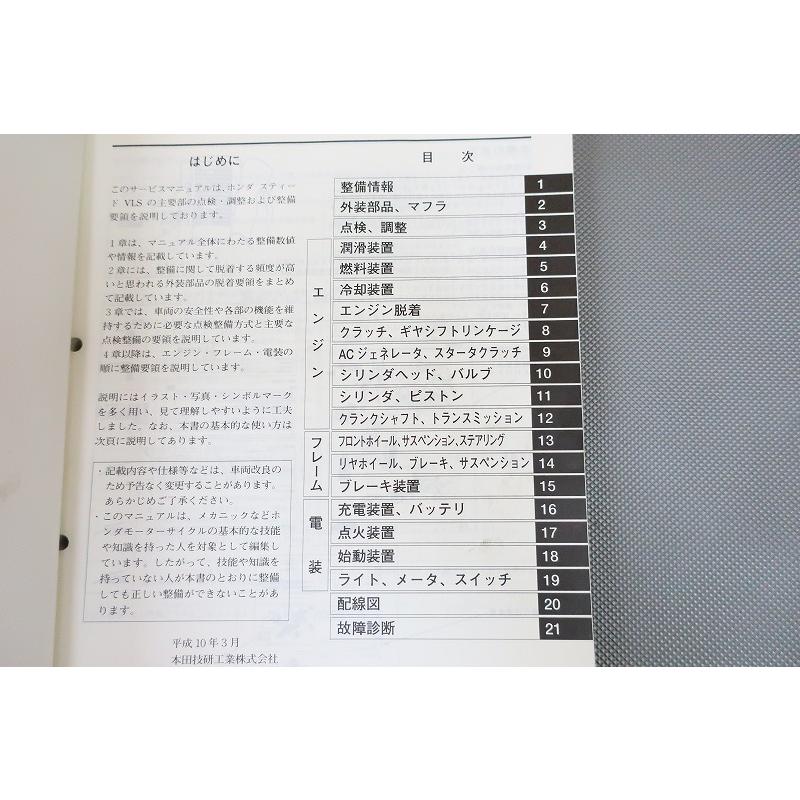 はじめに
このサービスマニュアルは、ホンダ スティー
ド VLS の主要部の点検・調整および整備
要領を説明しております。
1章は、マニュアル全体にわたる整備数値
や情報を記載しています。
2章には、整備に関して脱着する頻度が高
いと思われる外装部品の脱着要領をまとめ
て記載しています。
3章では、車両の安全性や各部の機能を維
持するために必要な点検整備方式と主要な
点検整備の要領を説明しています。
4章以降は、エンジン・フレーム・電装の
順に整備要領を説明しています。
説明にはイラスト・写真・シンボルマーク
を多く用い、見て理解しやすいように工夫
しました。なお、本書の基本的な使い方は
次頁に説明してあります。
・記載内容や仕様等などは、車両改良の
ため予告なく変更することがあります。
あらかじめご了承ください。
・このマニュアルは、メカニックなどホ
ンダモーターサイクルの基本的な技能
や知識を持った人を対象として編集し
ています。したがって、技能や知識を
持っていない人が本書のとおりに整備
しても正しい整備ができないことがあ
ります。
平成10年3月
本田技研工業株式会社
目 次
整備情報 1
外装部品、マフラ 2
点検、調整 3
エンジン
潤滑装置 4
燃料装置 5
冷却装置 6
エンジン脱着 7
クラッチ、ギヤシフトリンケージ 8
ACジェネレータ、スタータクラッチ 9
シリンダヘッド、バルブ 10
シリンダ、ピストン 11
クランクシャフト、トランスミッション 12
フレーム
フロントホイール、サスペンション、ステアリング 13
リヤホイール、ブレーキ、サスペンション 14
ブレーキ装置 15
電装
充電装置、バッテリ 16
点火装置 17
始動装置 18
ライト、メータ、スイッチ 19
配線図 20
故障診断 21